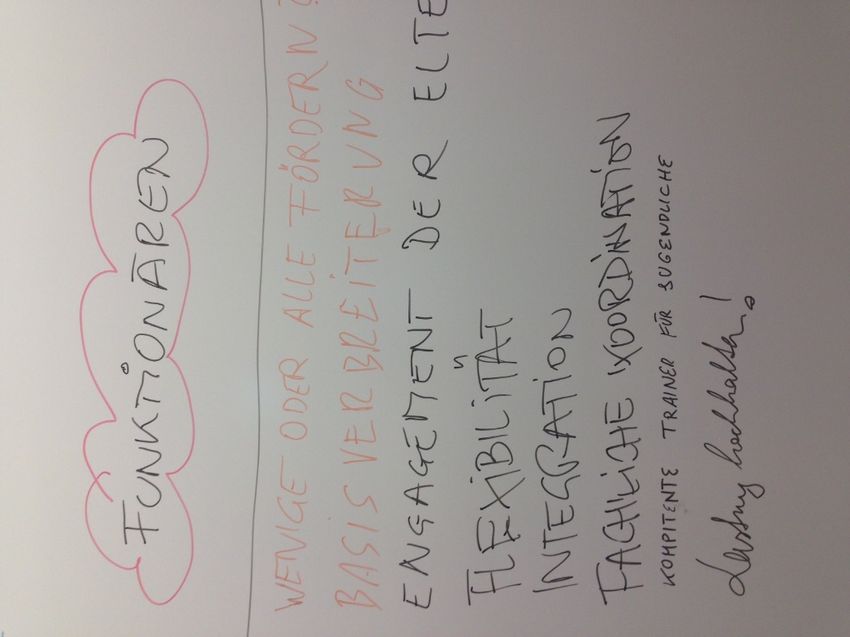 FUNKTIONÄREN
WENIGE ODER ALLE FÖRDERN?
BASISVERBREITERUNG
ENGAGEMENT DER ELTE
FLEXIBILITÄT
INTEGRATION
FACHLICHE KOORDINATION
KOMPITENTE TRAINER FÜR JUGENDLICHE
Leistung hochhalten!